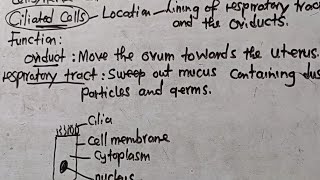 Ciliated Cells - Location - Lining of respiratory trac
and the oviducts.
Function:
oviduct : Move the ovum towards the uterus.
respiratory tract : Sweep out mucus containing dus
particles and germs.
Cilia
Cell membrane
Cytoplasm
nucleus